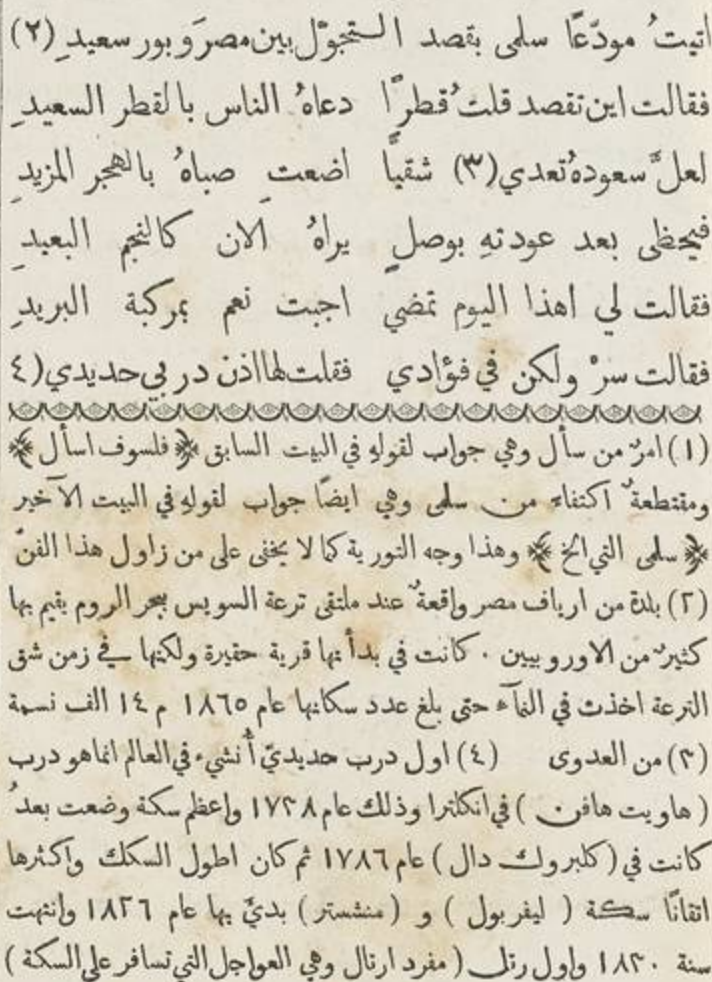 اتيتُ مودّعًا سلمى بقصد التجوّل بين مصرَ وبور سعيدِ (٢)
فقالت اين تقصد قلتُ قطرًا دعاهُ الناس بالقطر السعيدِ
لعلَّ سعودهُ تعدي (٣) شقيًا اضعتِ صباهُ بالهجر المزيدِ
فيحظى بعد عودتهِ بوصلٍ يراهُ الان كالنجم البعيدِ
فقالت لي اهذا اليوم تمضي اجبت نعم بمركبة البريدِ
فقالت سرْ ولكن في فؤادي فقلت لها اذن دربي حديدي (٤
(١) امرٌ من سأل وهي جواب لقولهِ في البيت السابق ﴿ فلسوف اسأل ﴾
ومقتطعةٌ اكتفاء من سلمى وهي ايضًا جواب لقولهِ في البيت الآخير
﴿ سلمى التي الخ ﴾ وهذا وجه التورية كما لا يخفى على من زاول هذا الفنّ
(٢) بلدة من ارياف مصر واقعةٌ عند ملتقى ترعة السويس ببحر الروم يقيم بها
كثيرٌ من الاوروبيين . كانت في بدأتها قرية حقيرة ولكنها في زمن شق
الترعة اخذت في النمآء حتى بلغ عدد سكانها عام ١٨٦٥ م ١٤ الف نسمة
(٣) من العدوى (٤) اول درب حديديّ أُنشيء في العالم انما هو درب
( هاويت هافن ) في انكلترا وذلك عام ١٧٣٨ واعظم سكة وضعت بعدُ
كانت في ( كلبروك دال ) عام ١٧٨٦ ثم كان اطول السكك واكثرها
اتقانًا سكة ( ليفربول ) و ( منشستر ) بديٌ بها عام ١٨٢٦ وانتهت
سنة ١٨٣٠ واول رتل ( مفرد ارتال وهي العواجل التي تسافر على السكة )